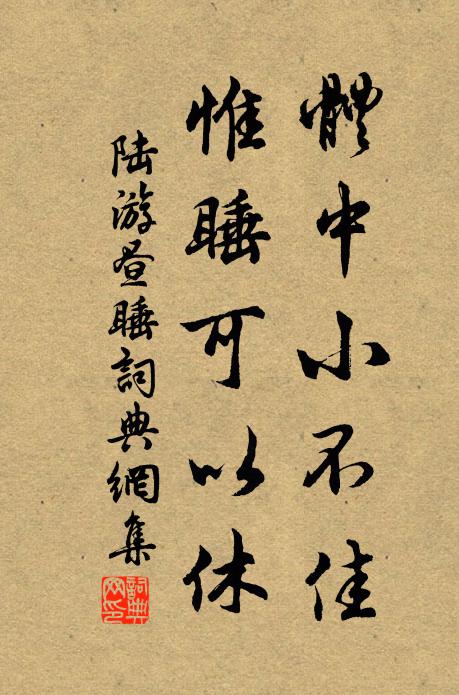 體中小不佳
惟睡可以休
陆游昼睡詞典網集
詞典网印